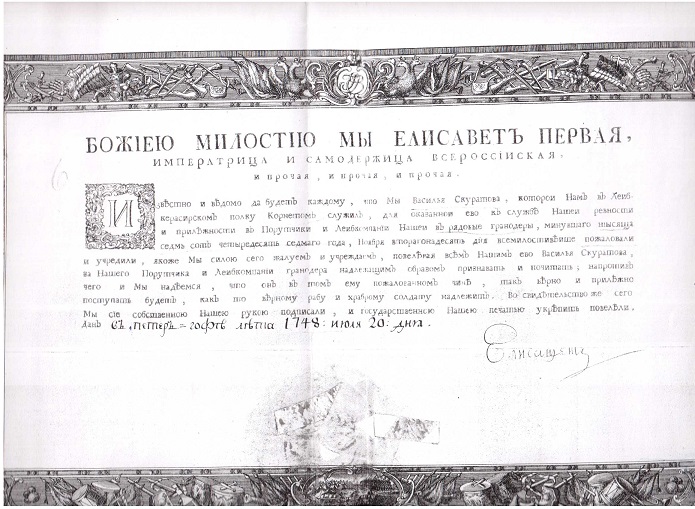 БОЖІЕЮ МИЛОСТІЮ МЫ ЕЛИСАВЕТЪ ПЕРВАЯ,
ИМПЕРАТРИЦА И САМОДЕРЖИЦА ВСЕРОССІИСКАЯ,
и прочая, и прочая, и прочая.
Ивѣстно и вѣдомо да будетъ каждому, что Мы Василья Скуратова, которои Намъ въ Леиб-
керасирскомъ полку Корнетомъ служилъ, для оказаннои его къ службѣ Нашеи ревности
и прилѣжности въ Порутчики и Леибкомпании Нашеи въ рядовые гранодеры, минувшаго тысяща
седмь сотъ четыредесятъ седмаго года, Ноября второгонадесять дня всемилостивѣише пожаловали
и учредили, якоже Мы силою сего жалуемъ и учреждаемъ, повелѣвая всѣмъ Нашимъ его Василья Скуратова,
за Нашего Порутчика и Леибкомпании гранодера надлежащимъ образомъ признавать и почитать; напротивъ
чего и Мы надѣемся, что онъ въ томъ ему пожалованномъ чинѣ, такъ вѣрно и прилѣжно
поступать будетъ, какъ то вѣрному рабу и храброму солдату надлежитъ. Во свидѣтельство же сего
Мы сіе собственною Нашею рукою подписали, и государственною Нашею печатью укрѣпить повелѣли.
Данъ въ Петергофѣ лѣта 1748: июля 20: дня.
Елисаветъ